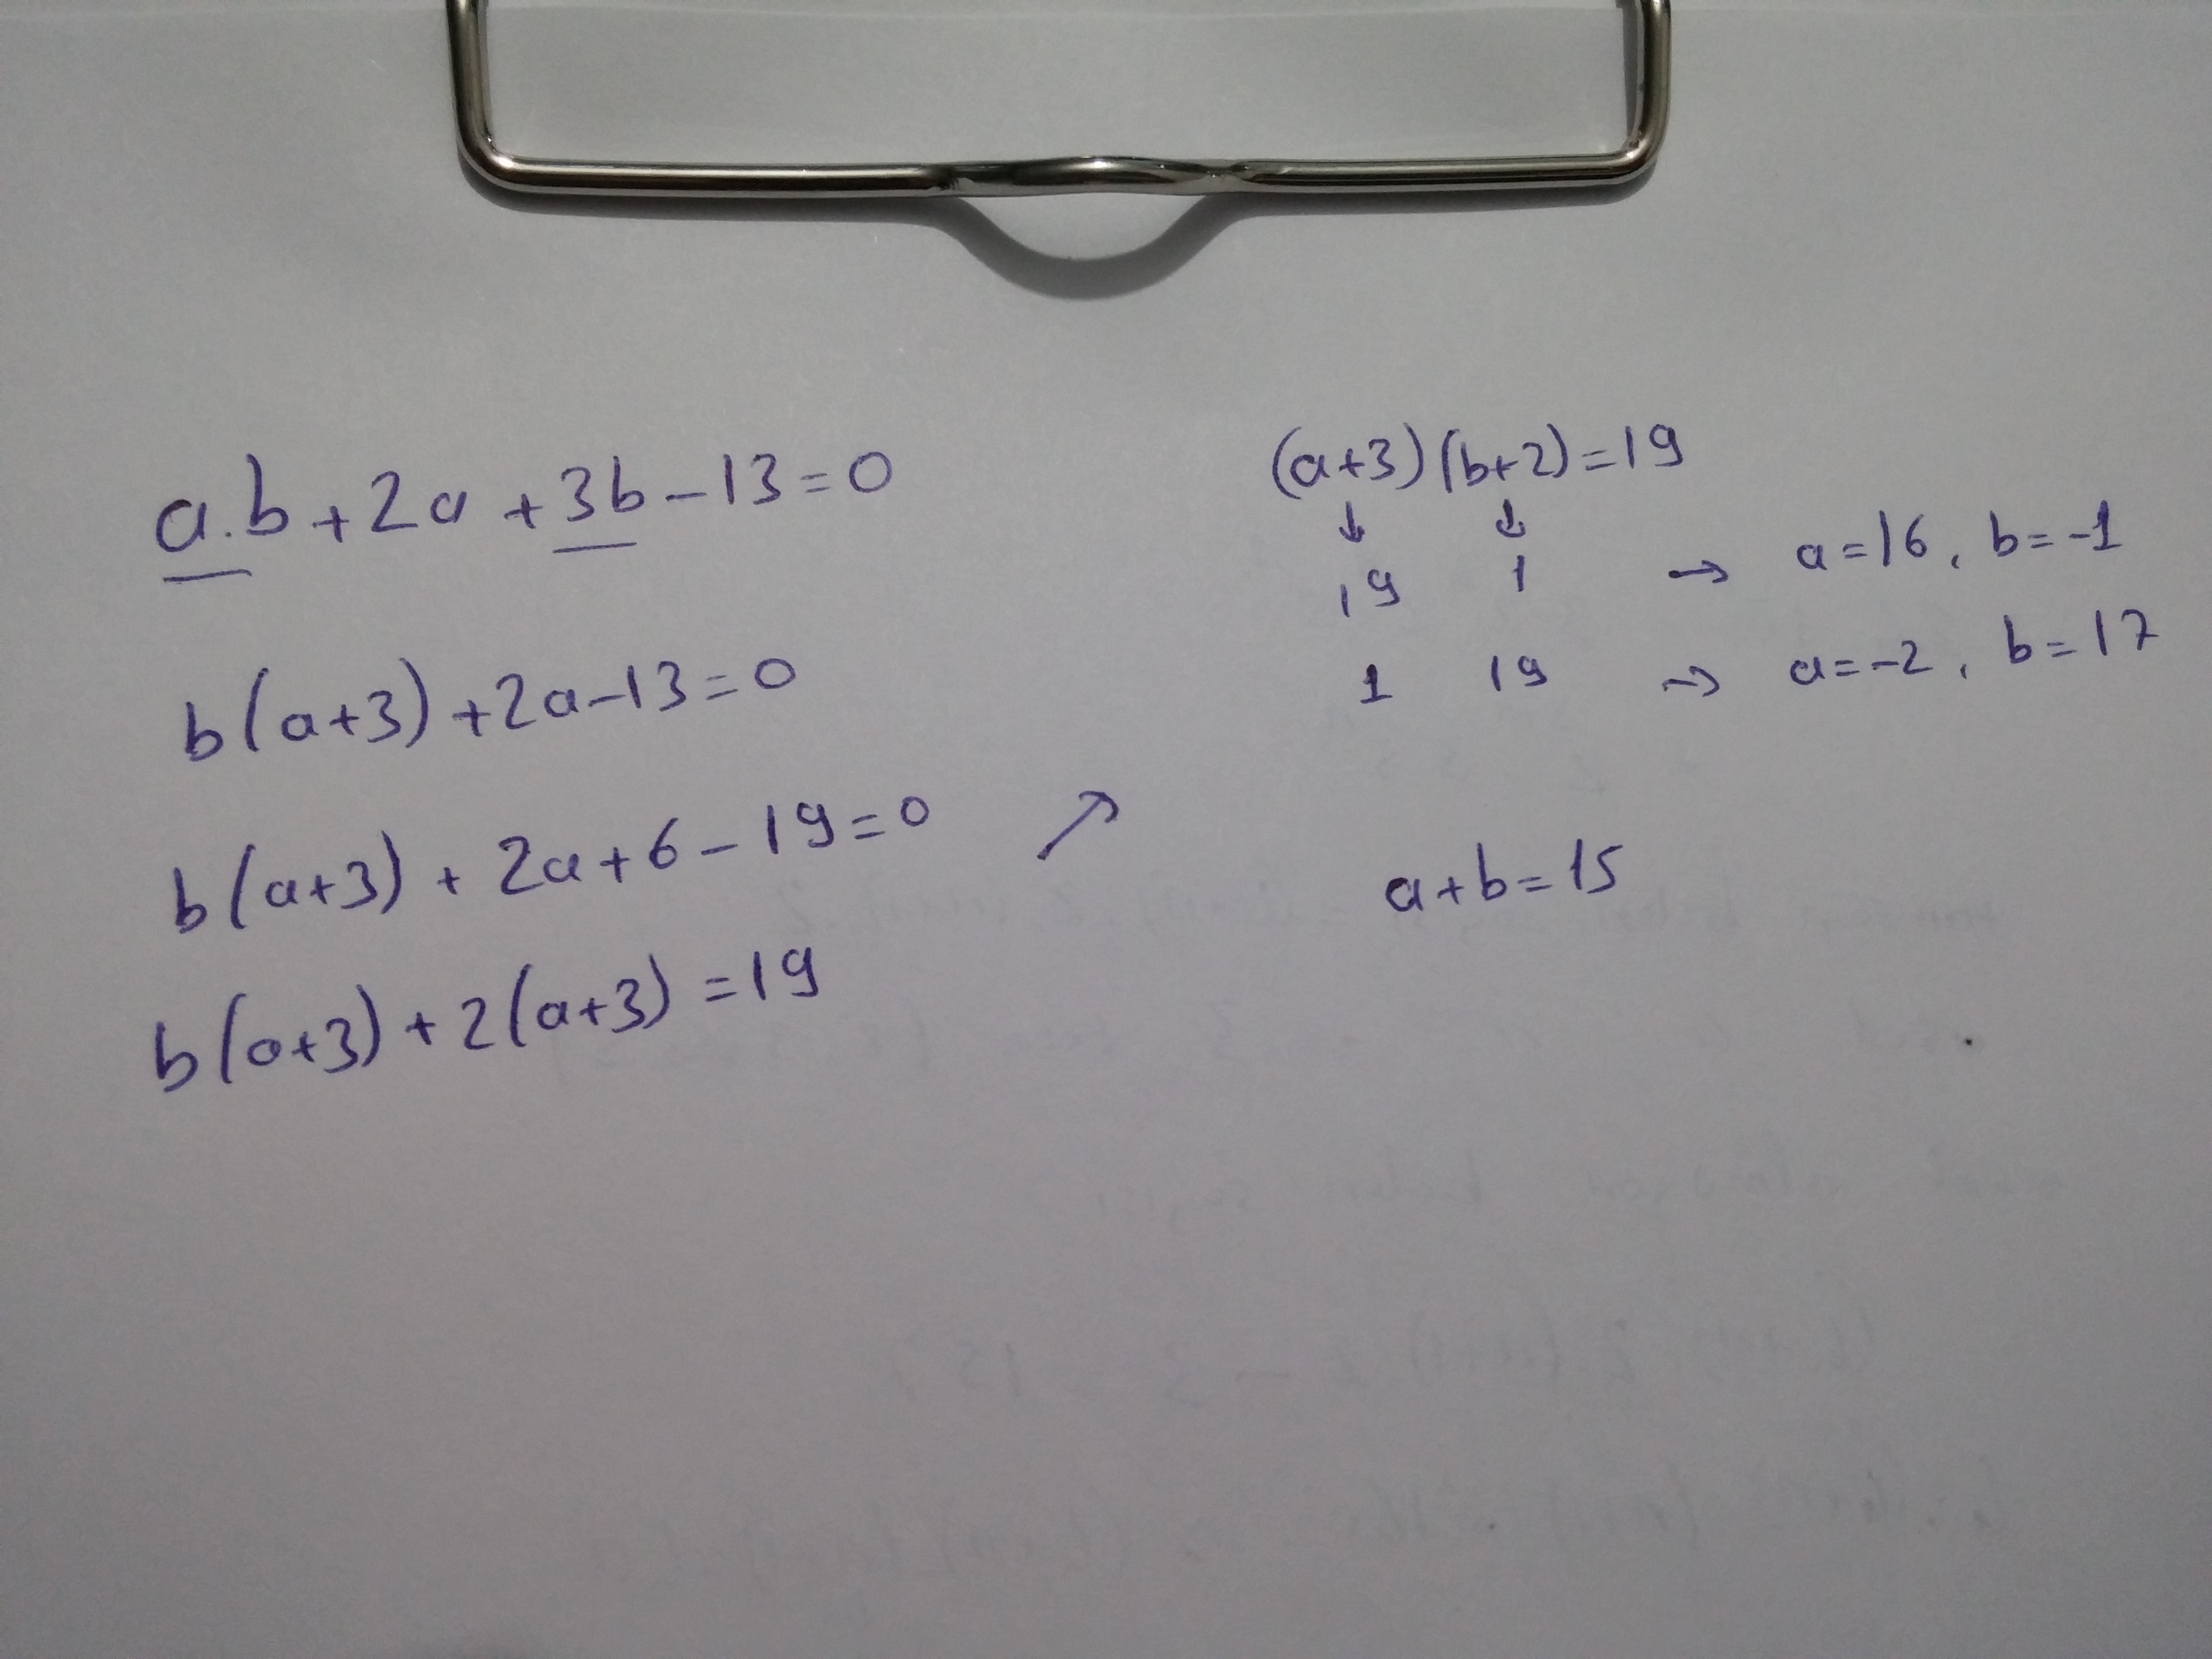 a.b+2a+3b-13=0
b(a+3)+2a-13=0
b(a+3)+2a+6-19=0 ↗
b(a+3)+2(a+3)=19
(a+3)(b+2)=19
↓ ↓
19 1 → a=16, b=-1
1 19 → a=-2, b=17
a+b=15